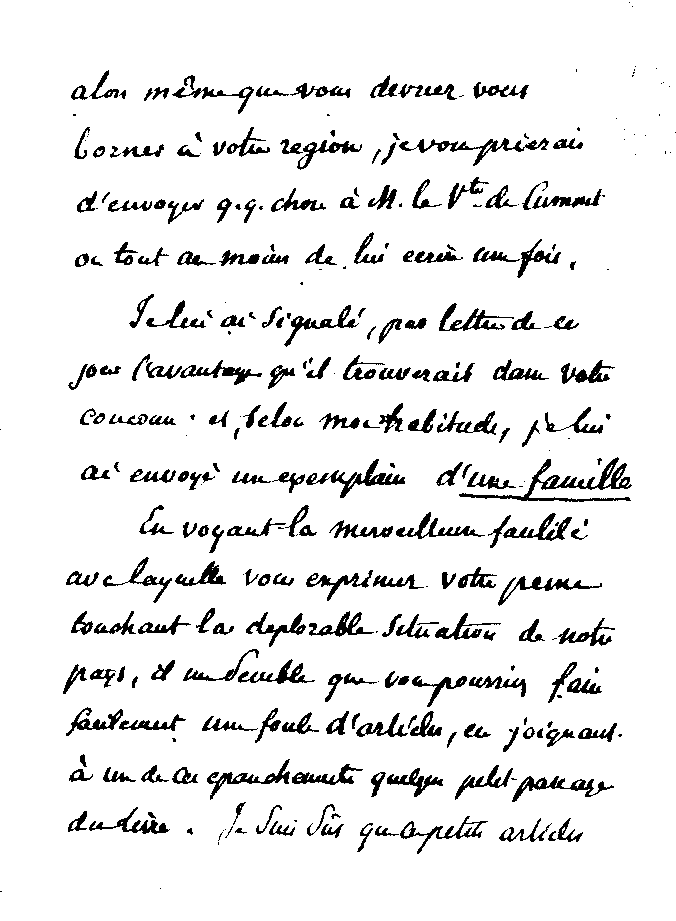 alors même que vous devriez vous
borner à votre region, je vous prierais
d'envoyer q.q. chose à M. le Vte de Cummont
ou tout au moins de lui ecrire une fois.
Je lui ai signalé, par lettre de ce
jour l'avantage qu'il trouverait dans votre
concours. et, selon mon habitude, je lui
ai envoyé un exemplaire d'une famille
En voyant la merveilleuse facilité
avec laquelle vous exprimer votre pensée
touchant la deplorable situation de notre
pays, il me semble que vous pourriez faire
facilement une foule d'articles, en joignant
à un de ces epanchements quelque petit passage
du livre. Je suis sûr que ces petits articles